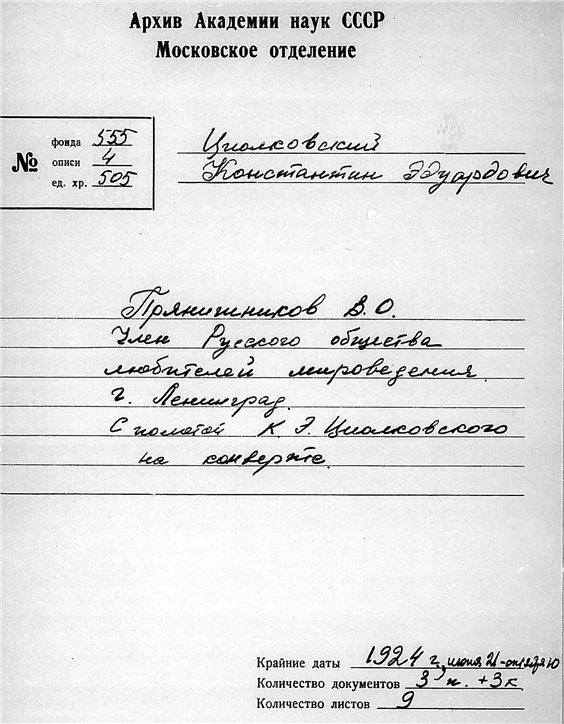 Архив Академии наук СССР
Московское отделение
№
фонда 555
описи 4
ед. хр. 505
Циолковский
Константин Эдуардович
Прянишников В.О.
Член Русского общества
любителей мироведения.
г. Ленинград.
С пометой К. Э. Циолковского
на конверте.
Крайние даты 1924 г., июня 21-октября 10
Количество документов 3 п. + 3 к.
Количество листов 9